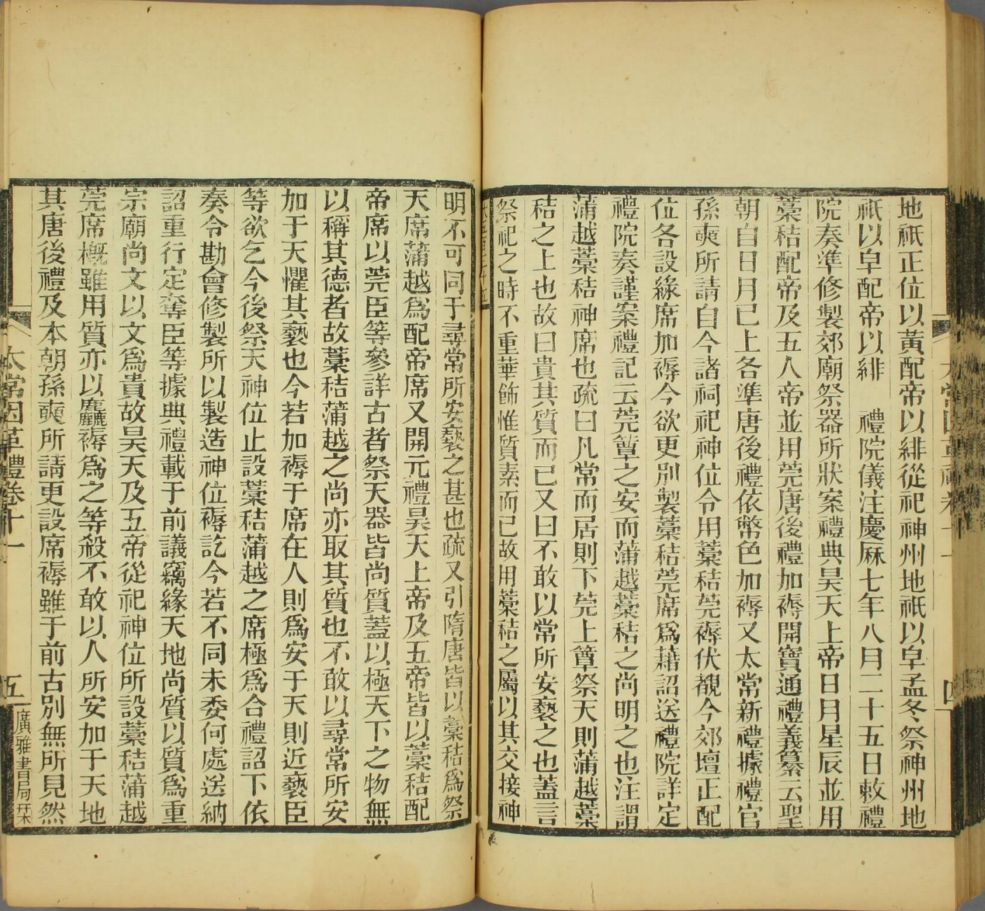 地祇正位以黃配帝以緋從祀神州地祇以皁孟冬祭神州地
祇以皁配帝以緋　禮院儀注慶厤七年八月二十五日敕禮
院奏準修製郊廟祭器所狀案禮典昊天上帝日月星辰並用
藁秸配帝及五人帝並用莞唐後禮加褥開寶通禮義纂云聖
朝自日月已上各準唐後禮依幣色加褥又太常新禮據禮官
孫奭所請自今諸祠祀神位令用藁秸莞褥伏覩今郊壇正配
位各設緣席加褥今欲更別製藁秸莞席爲藉詔送禮院詳定
禮院奏謹案禮記云莞簟之安而蒲越藁秸之尚明之也注謂
蒲越藁秸神席也疏曰凡常而居則下莞上簟祭天則蒲越藁
秸之上也故曰貴其質而已又曰不敢以常所安褻之也蓋言
祭祀之時不重華飾惟質素而已故用藁秸之屬以其交接神
明不可同于尋常所安褻之甚也疏又引隋唐皆以藁秸爲祭
天席蒲越爲配帝席又開元禮昊天上帝及五帝皆以藁秸配
帝席以莞臣等參詳古者祭天器皆尚質蓋以極天下之物無
以稱其德者故藁秸蒲越之尚亦取其質也不敢以尋常所安
加于天懼其褻也今若加褥于席在人則爲安于天則近褻臣
等欲乞今後祭天神位止設藁秸蒲越之席極爲合禮詔下依
奏令勘會修製所以製造神位褥訖今若不同未委何處送納
詔重行定奪臣等據典禮載于前議竊緣天地尚質以質爲重
宗廟尚文以文爲貴故昊天及五帝從祀神位所設藁秸蒲越
莞席概雖用質亦以麤褥爲之等殺不敢以人所安加于天地
其唐後禮及本朝孫奭所請更設席褥雖于前古別無所見然
太常因革禮卷十一
五
廣雅書局栞